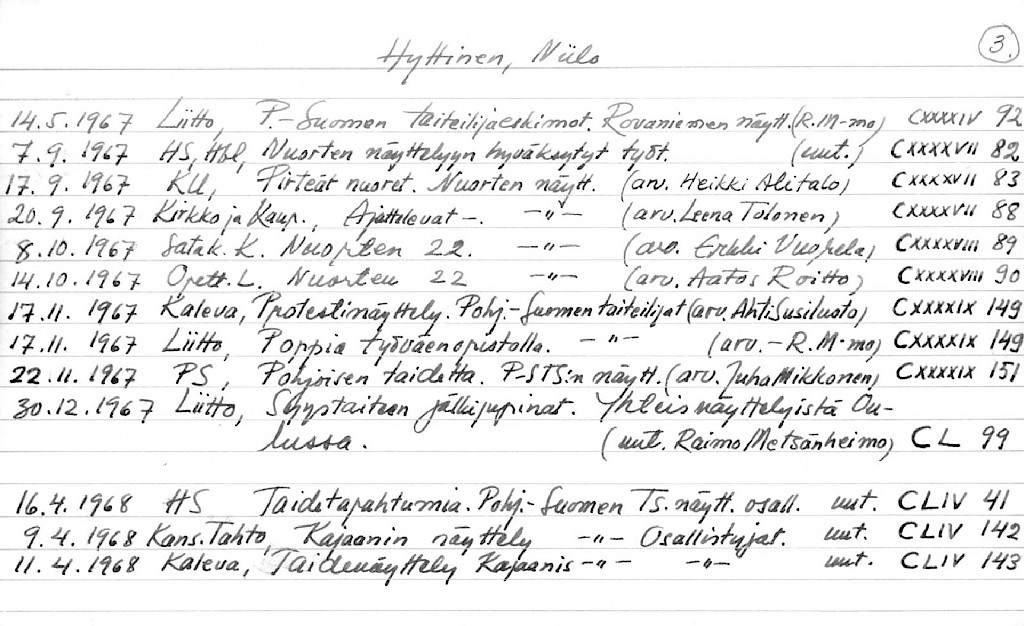 Hyttinen, Niilo
3.
14.5.1967 Liitto, P.-Suomen taiteilijaeskimot. Rovaniemen näytt. (R.M-mo) CXXXXIV 92
7.9.1967 HS, Hbl, Nuorten näyttelyyn hyväksytyt työt. (uut.) CXXXXVII 82
17.9.1967 KU, Pirteät nuoret. Nuorten näytt. (arv. Heikki Alitalo) CXXXXVII 83
20.9.1967 Kirkko ja Kaup., Ajattelevat -. -"- (arv. Leena Tolonen) CXXXXVII 88
8.10.1967 Satak. K. Nuorten 22. -"- (arv. Erkki Vuorela) CXXXXVIII 89
14.10.1967 Opett. L. Nuorten 22 -"- (arv. Aatos Roitto) CXXXXVIII 90
17.11.1967 Kaleva, Protestinäyttely. Pohj.-Suomen taiteilijat (arv. Ahti Susiluoto) CXXXXIX 149
17.11.1967 Liitto, Poppia työväenopistolla. -"- (arv.- R.M-mo) CXXXXIX 149
22.11.1967 PS, Pohjoisen taidetta. P-STS:n näytt. (arv. Juha Mikkonen) CXXXXIX 151
30.12.1967 Liitto, Syystaiteen jälkijupinat. Yhteisnäyttelyistä Ou-
lussa. (uut. Raimo Metsänheimo) CL 99
16.4.1968 HS Taidetapahtumia. Pohj.-Suomen Ts. näytt. osall. uut. CLIV 41
9.4.1968 Kans. Tahto, Kajaanin näyttely -"- Osallistujat. uut. CLIV 142
11.4.1968 Kaleva, Taidenäyttely Kajaanis -"- -"- uut. CLIV 143